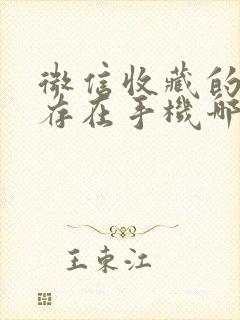 微信收藏的
存在手機哪
王東江